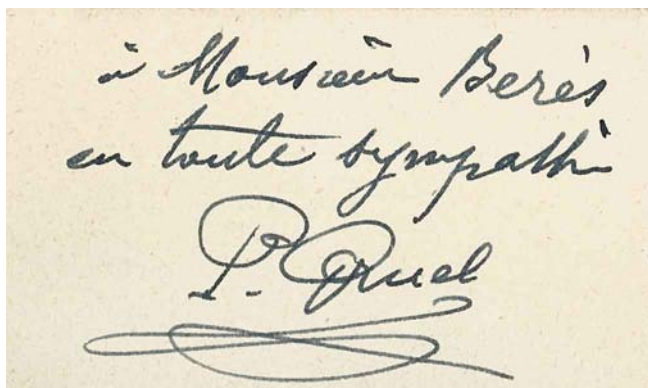 à Monsieur Berès
en toute sympathie
P. Gruel